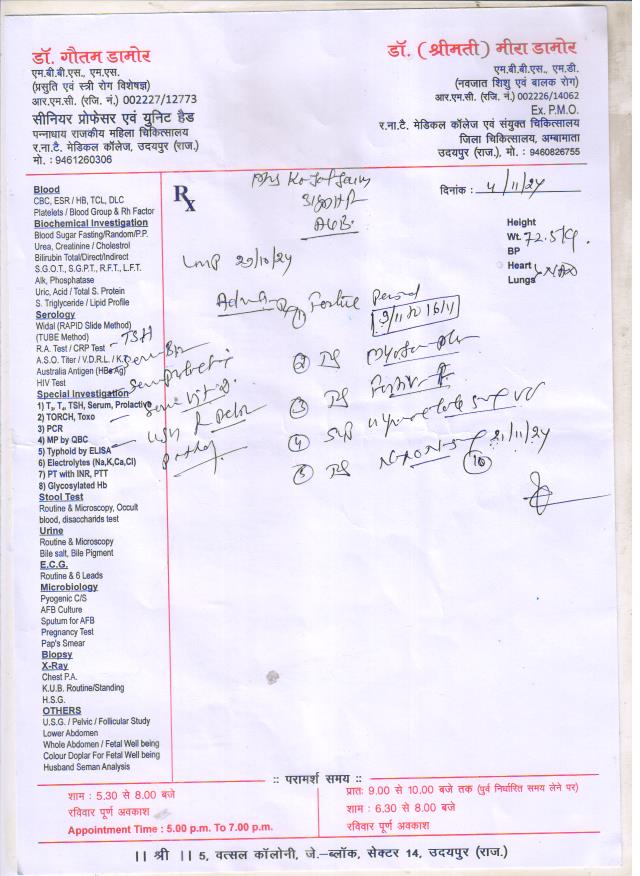 डॉ. गौतम डामोर
एम.बी.बी.एस., एम.एस.
(प्रसुति एवं स्त्री रोग विशेषज्ञ)
आर.एम.सी. (रजि. नं.) 002227/12773
सीनियर प्रोफेसर एवं युनिट हैड
पन्नाधाय राजकीय महिला चिकित्सालय
र.ना.टै. मेडिकल कॉलेज, उदयपुर (राज.)
मो. : 9461260306
डॉ. (श्रीमती) मीरा डामोर
एम.बी.बी.एस., एम.डी.
(नवजात शिशु एवं बालक रोग)
आर.एम.सी. (रजि. नं.) 002226/14062
Ex. P.M.O.
र.ना.टै. मेडिकल कॉलेज एवं संयुक्त चिकित्सालय
जिला चिकित्सालय, अम्बामाता
उदयपुर (राज.), मो. : 9460826755
Rx
दिनांक : 4/11/24
Height
Wt. 72.5 kg.
BP
Heart
Lungs NAD
LMP 29/10/24
① Fertile Period
9/11 to 16/11
②
③
④
21/11/24
⑤
10
TSH
Blood
CBC, ESR / HB, TCL, DLC
Platelets / Blood Group & Rh Factor
Biochemical Investigation
Blood Sugar Fasting/Random/P.P.
Urea, Creatinine / Cholestrol
Bilirubin Total/Direct/Indirect
S.G.O.T., S.G.P.T., R.F.T., L.F.T.
Alk, Phosphatase
Uric, Acid / Total S. Protein
S. Triglyceride / Lipid Profile
Serology
Widal (RAPID Slide Method)
(TUBE Method)
R.A. Test / CRP Test
A.S.O. Titer / V.D.R.L. / K.T.
Australia Antigen (HBeAg)
HIV Test
Special Investigation
1) T₃, T₄, TSH, Serum, Prolactive
2) TORCH, Toxo
3) PCR
4) MP by QBC
5) Typhoid by ELISA
6) Electrolytes (Na,K,Ca,Cl)
7) PT with INR, PTT
8) Glycosylated Hb
Stool Test
Routine & Microscopy, Occult
blood, disaccharids test
Urine
Routine & Microscopy
Bile salt, Bile Pigment
E.C.G.
Routine & 6 Leads
Microbiology
Pyogenic C/S
AFB Culture
Sputum for AFB
Pregnancy Test
Pap's Smear
Biopsy
X-Ray
Chest P.A.
K.U.B. Routine/Standing
H.S.G.
OTHERS
U.S.G. / Pelvic / Follicular Study
Lower Abdomen
Whole Abdomen / Fetal Well being
Colour Doplar For Fetal Well being
Husband Seman Analysis
:: परामर्श समय ::
शाम : 5.30 से 8.00 बजे
रविवार पूर्ण अवकाश
Appointment Time : 5.00 p.m. To 7.00 p.m.
प्रातः 9.00 से 10.00 बजे तक (पुर्व निर्धारित समय लेने पर)
शाम : 6.30 से 8.00 बजे
रविवार पूर्ण अवकाश
।। श्री ।। 5, वत्सल कॉलोनी, जे.–ब्लॉक, सेक्टर 14, उदयपुर (राज.)